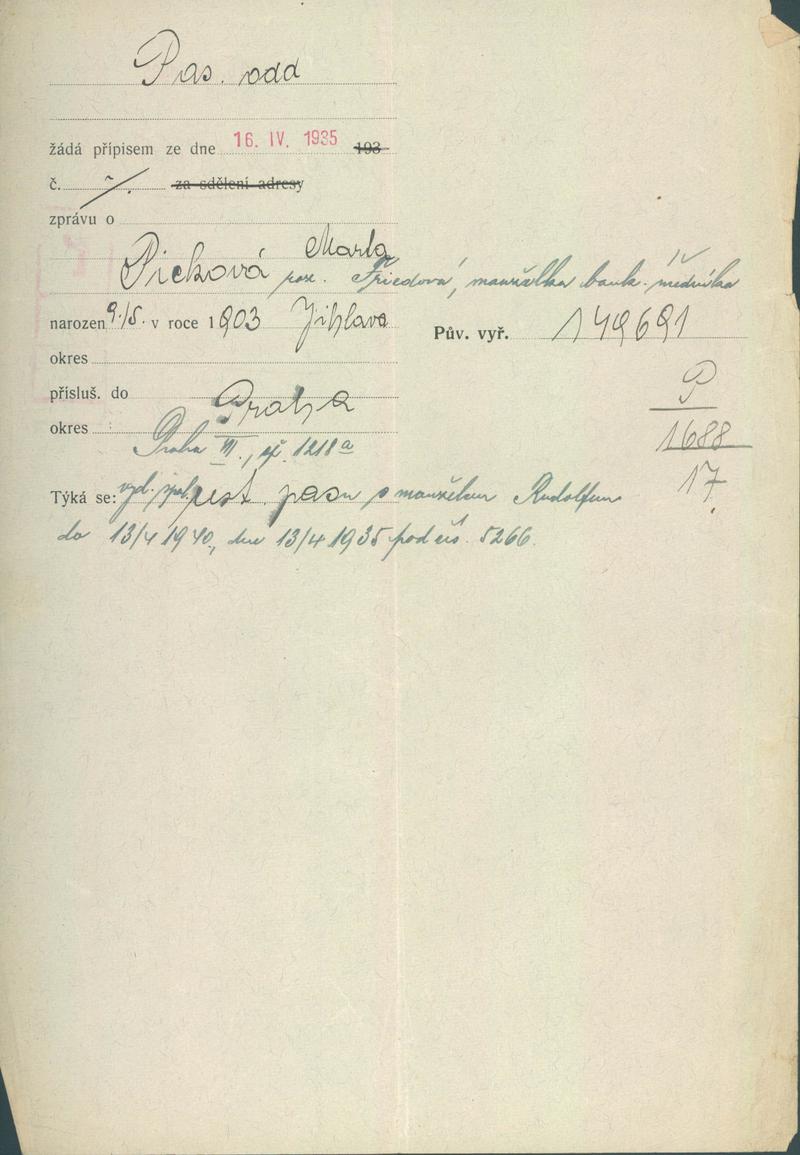 Pas. odd
žádá přípisem ze dne 16. IV. 1935 193
č. ./. za sdělení adresy
zprávu o
Picková Marta roz. Friedová, manželka bank. úředníka
narozen 9./5. v roce 1903 Jihlava Pův. vyř. 149691
okres
přísluš. do Praha
P
okres
1688
Praha VII., čp. 1218a
17
Týká se: vyd. spol. cest. pasu s manželem Rudolfem
do 13/4 1940, dne 13/4 1935 pod čís. 5266.